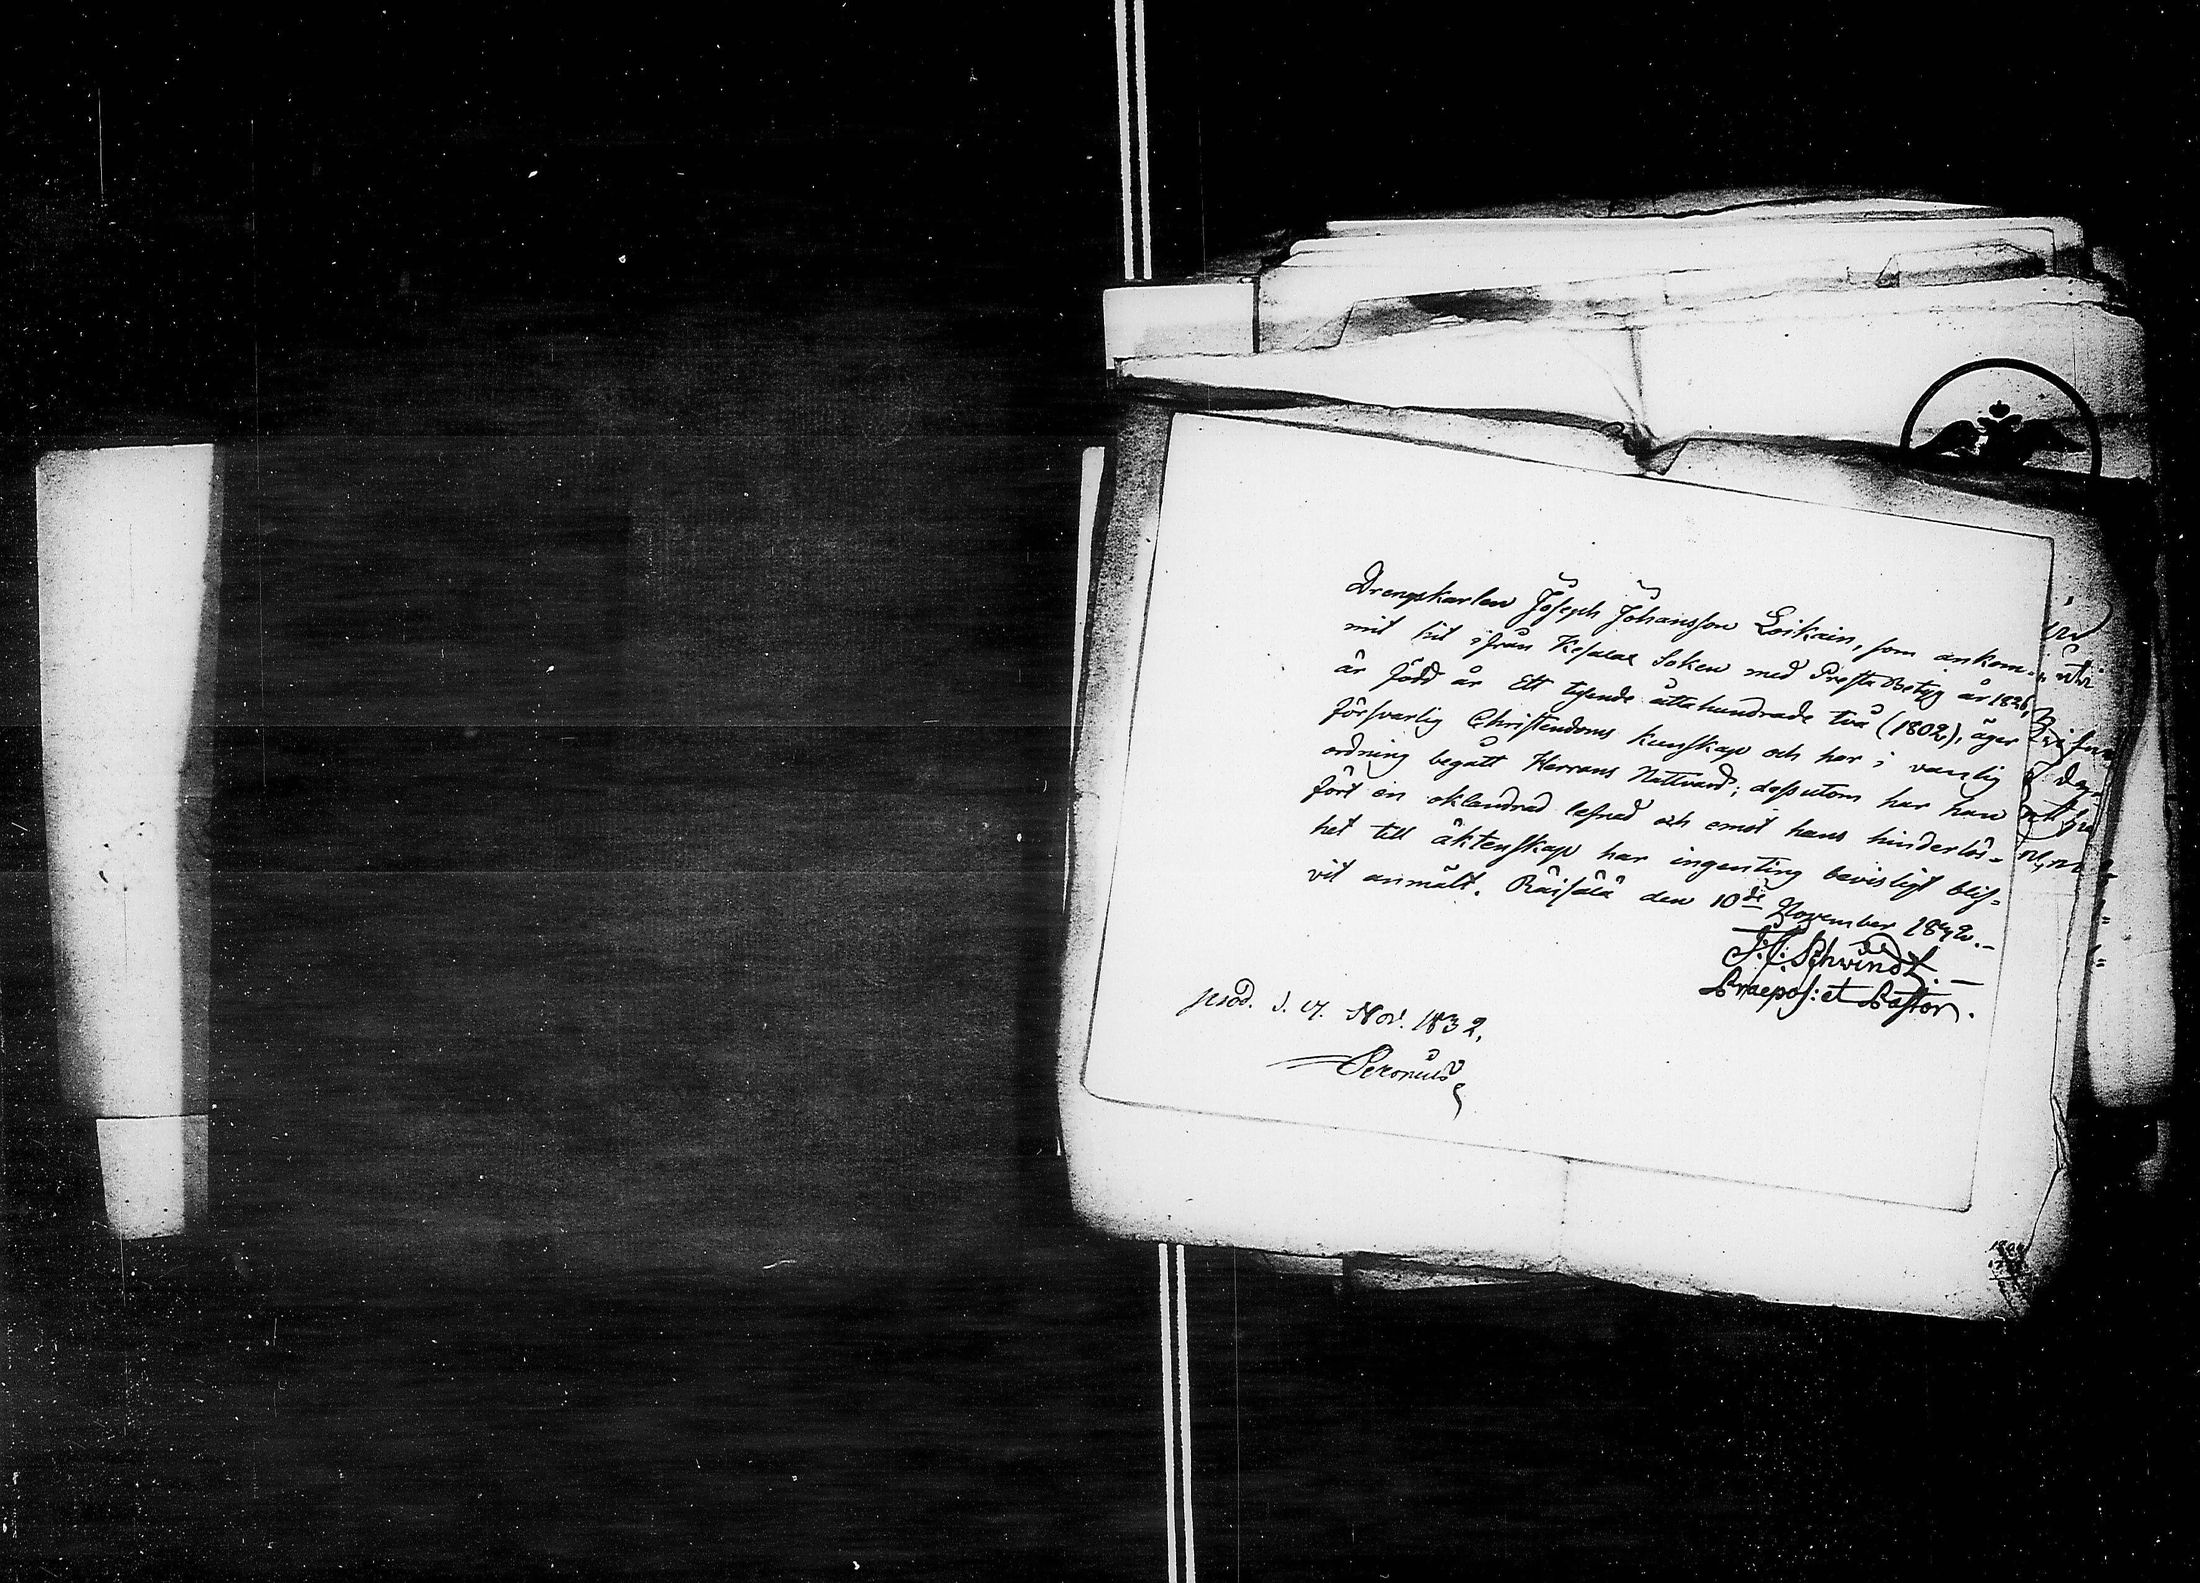 Drengskarlen Joseph Johansson Loikain, som ankom-
mit hit ifrån Kesälax Soken med Presta Betyg år 1826,
är född år Ett tusende åttahundrade två (1802), äger
försvarlig Christendoms kunskap och har i vanlig
ordning begått Herrans Nattvard; dessutom har han
fört en oklandrad lefnad och emot hans hinderlös-
het till äktenskap har ingenting bevisligt blif-
vit anmält. Räisälä den 10de November 1832.
F. J. Schwindt.
Praepos: et Pastor.
prod. d. 17. Nov. 1832.